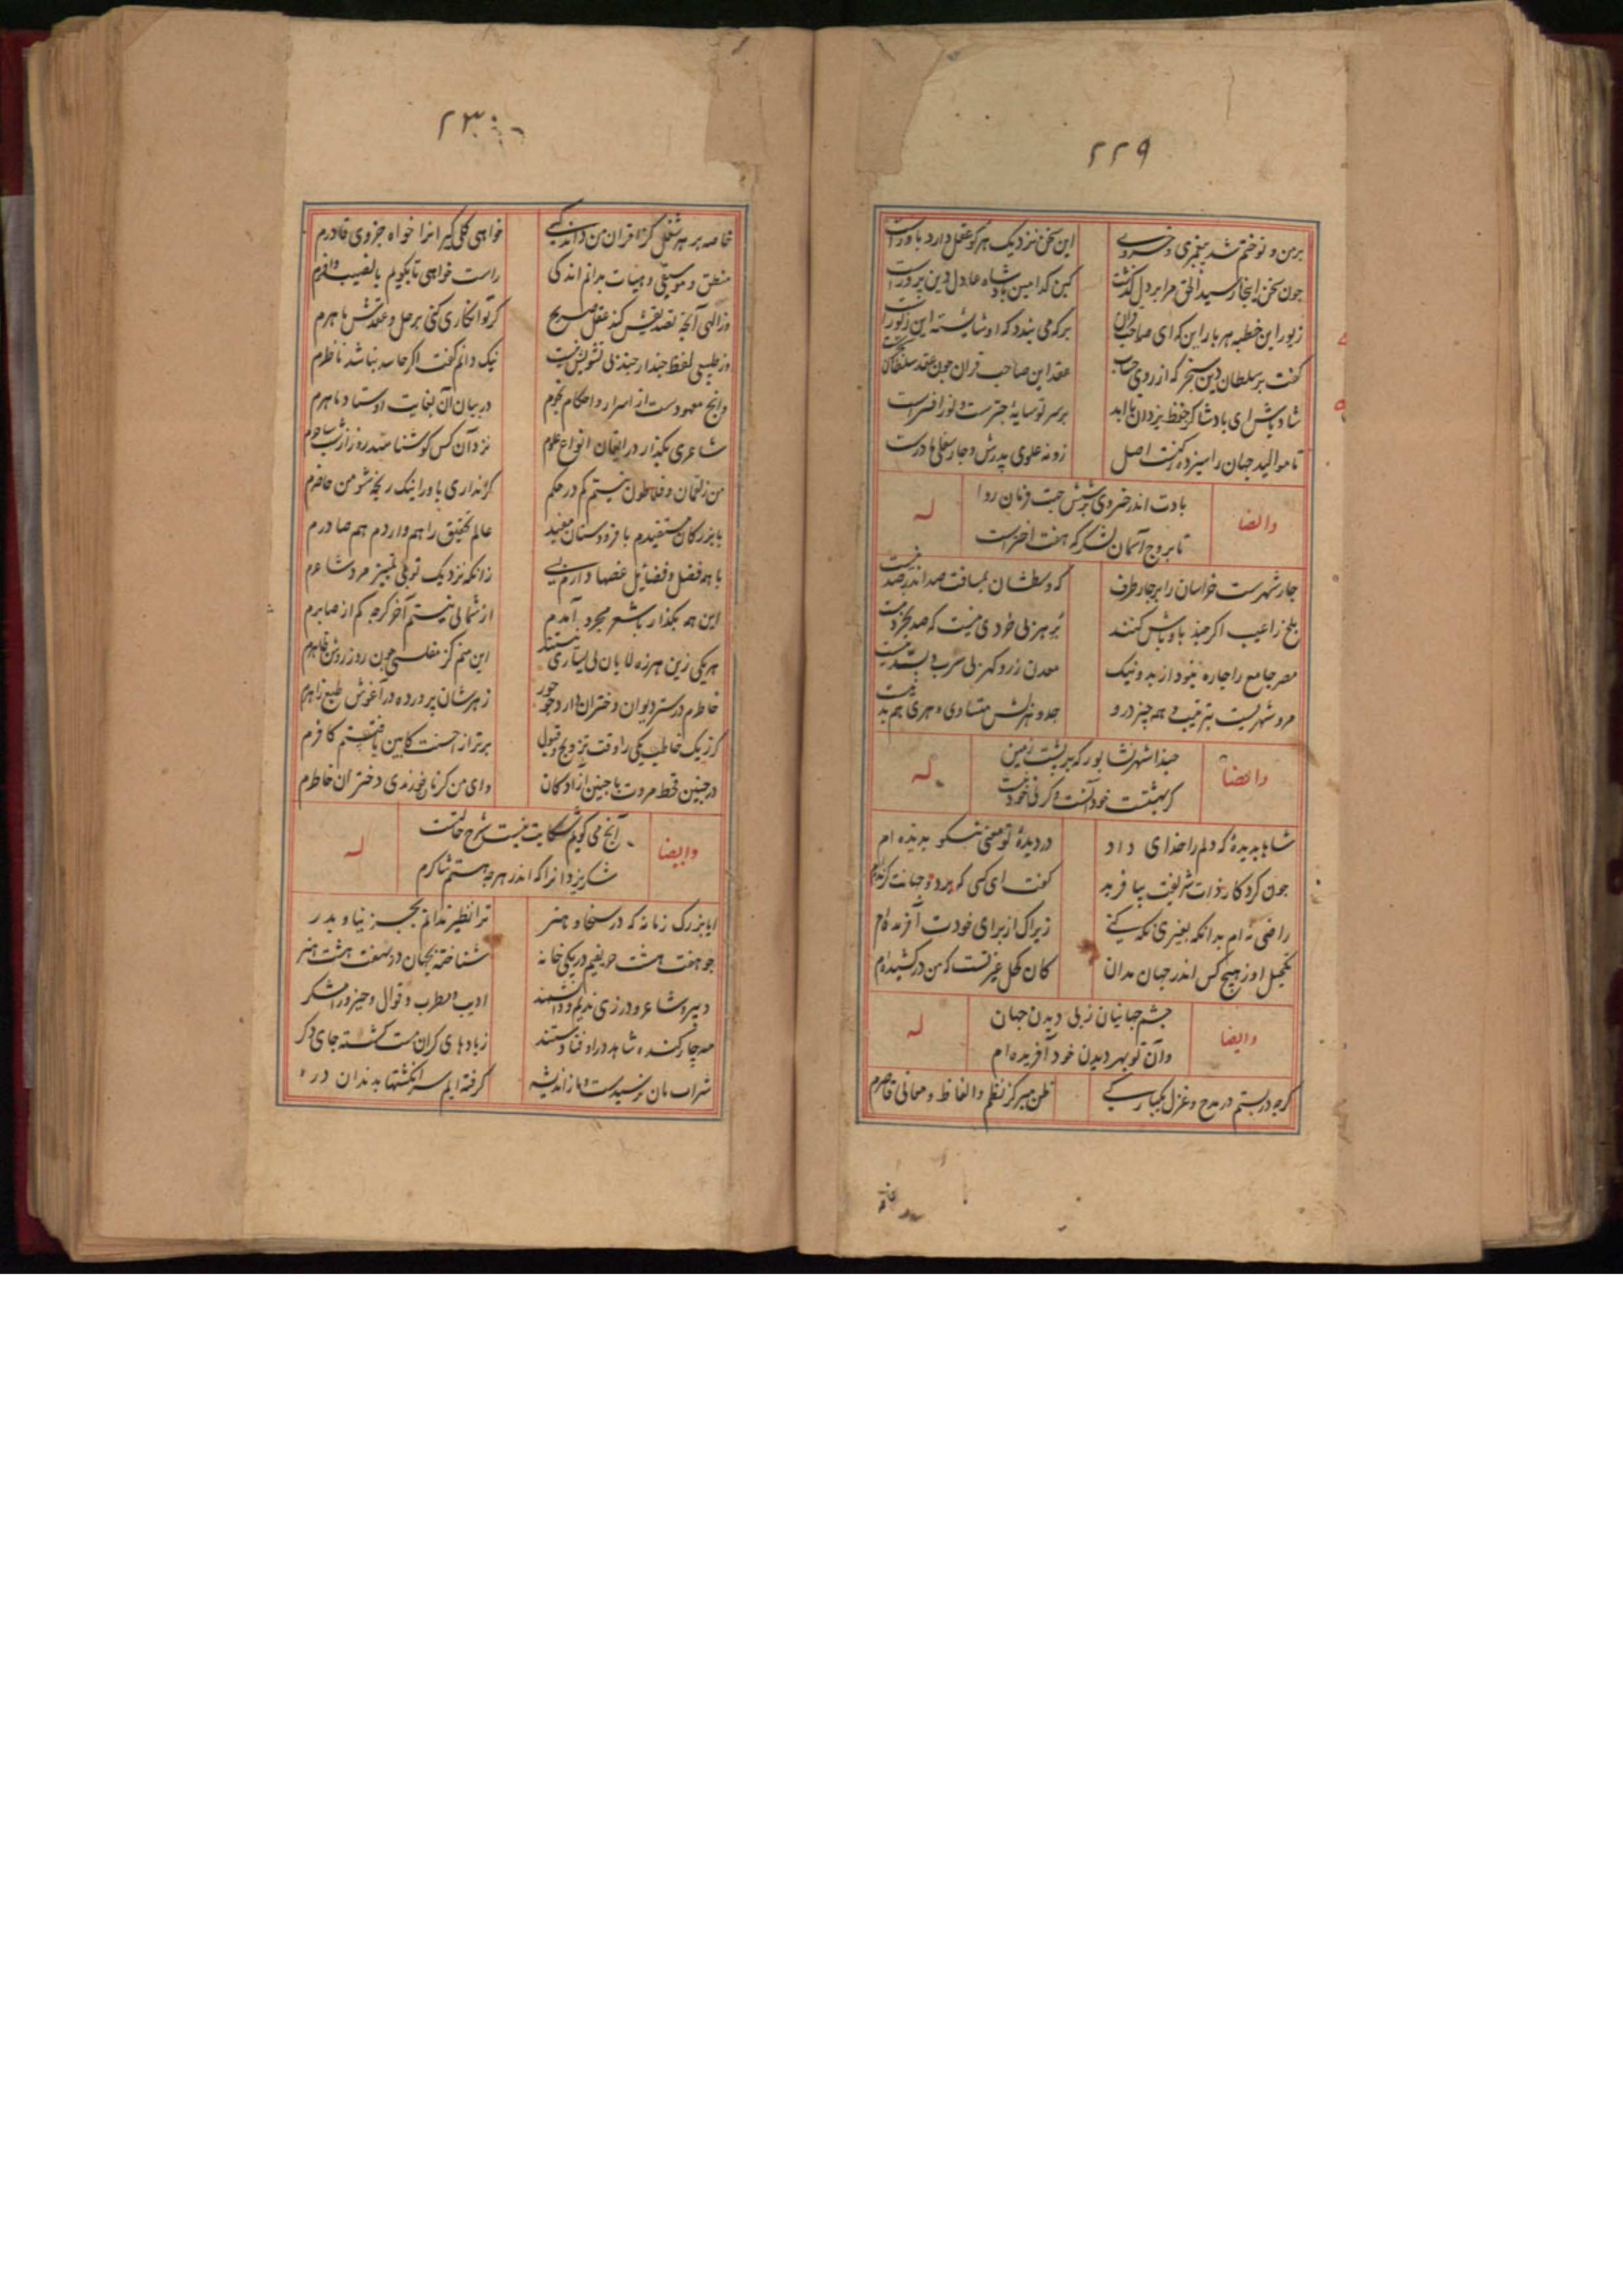 ۲۲۹
بر من و تو ختم شد پیغمبری و خسروی
این سخن نزدیک هر کو عقل دارد باورست
چون سخن اینجا رسید الحق مرا بر دل گذشت
کین کدامین پادشاه عادل دین پرورست
زیور این خطبه هر بار این که ای صاحب قران
بر که می بندد که او شایسته این زیورست
گفت بر سلطان دین سنجر که از روی حساب
عقد این صاحب قران چون عقد سلطان سنجرست
شاد باش ای پادشا کز حفظ یزدان تا ابد
بر سر تو سایه چترست و نور افسرست
تا موالید جهان را سیزده رکنست اصل
زو نه علوی پدرش و چار سفلی مادرست
بادت اندر خسروی بر شش جهت فرمان روا
تا بروج آسمان لشکر که هفت اخترست
وایضا
له
چار شهرست خراسان را بر چار طرف
که وسطشان بمسافت صد اندر صد نیست
بلخ را عیب اگر چند باوباش کنند
بر هر بی خردی نیست که صد بخرد نیست
مصر جامع را چاره نبود از بد و نیک
معدن زر و گهر بی سرب و بسد نیست
مرو شهریست بترتیب همه چیز درو
جد و هزلش متساوی و هری هم بد نیست
حبذا شهر نشابور که بر پشت زمین
گر بهشتست خود آنست و گرنی خود نیست
وایضا
له
شاها بدیده که دلم را خدای داد
در دیده تو معنی نیکو بدیده ام
چون کردگار ذات شریفت بیافرید
گفت ای کسی که بر دو جهانت گزیده ام
راضی نه ام بدانکه بغیری نگه کنی
زیراک از برای خودت آفریده ام
تکحیل او ز هیچ کس اندر جهان مدان
کان کحل غیرتست که من در کشیده ام
چشم جهانیان ز پی دیدن جهان
وان تو بهر دیدن خود آفریده ام
وایضا
له
گرچه در بستم در مدح و غزل یکبارگی
ظن مبر کز نظم والفاظ و معانی قاصرم
۲۳۰
خاصه بر هر شغل کز اقران من داند کسی
خواهی کلی گیر انرا خواه جزوی قادرم
منطق و موسیقی و هیات بدانم اندکی
راست خواهی تا بگویم با نصیب وافرم
وز الهی آنچه تصدیقش کند عقل صریح
گر تو انکاری کنی بر حل و عقدش ماهرم
وز طبیعی لفظ چند ار چند بی تشویش نیست
نیک دانم گفت اگر حاسد نباشد ناظرم
وانچ معهودست از اسرار و احکام نجوم
در بیان آن بغایت اوستاد ماهرم
شاعری بگذار در ایقان انواع علوم
نزد آن کس کو شناسد
من ز لقمان و فلاطون نیستم کم در حکم
گر نداری باور اینک رنجه شو من حاضرم
با بزرگان مستفیدم با فرودستان مفید
عالم تحقیق را هم واردم هم صادرم
با همه فضل و فضایل غصها دارم بسی
زانکه نزدیک تو بی تمییز مرد شاعرم
این همه بگذار با شعر مجرد آمدم
از شمالی نیستم آخر گرچه کم از صابرم
هر یکی زین هرزه لایان بی یساری نیستند
این منم کز مفلسی چون روز روشن ظاهرم
خاطرم در ستر دیوان دختران دارد چو حور
زهرشان پرورده در آغوش طبع زاهرم
گر ز یک خاطب یکی را وقت تزویج و قبول
برتر از احسنت کابین یافتستم کافرم
در چنین قحط مروت با چنین آزادگان
وای من گر نان خورندی دختران خاطرم
آنچ می گویم شکایت نیست شرح حالتست
شکر یزدانرا که اندر هرچه هستم شاکرم
وایضا
له
ایا بزرگ زمانه که در سخا و هنر
ترا نظیر ندانم بجز نیا و پدر
چو هفت هشت حریفیم در یکی خانه
شناخته بجهان در بهفت هشت هنر
دبیر و شاعر و درزی ندیم و دانشمند
ادیب و مطرب و قوال و حیز و رامشگر
صد چار کنده شاهد دراوفتادستند
ز بادهای گران مست گشته جای دگر
شراب مان نرسیدست و ما ز اندیشه
گرفته ایم سر انگشتها بدندان در